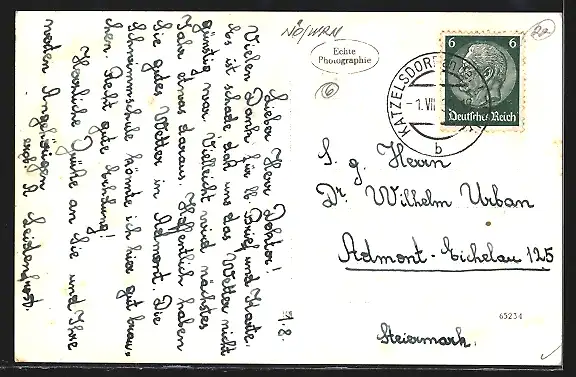 1.8.
Lieber Herr Doktor!
Vielen Dank für lb. Brief und Karte.
Es ist schade, daß uns das Wetter nicht
günstig war. Vielleicht wird nächstes
Jahr etwas daraus. Hoffentlich haben
Sie gutes Wetter in Admont. Die
Schwimmschule könnte ich hier gut brau-
chen. Recht gute Erholung!
Herzliche Grüße an Sie und Ihre
werten Angehörigen
Leidenfrost.
NÖ/WRN
Echte
Photographie
6
KATZELSDORF
-1. VII
b
6 6
Deutsches Reich
S. g. Herrn
Dr. Wilhelm Urban
Admont-Eichelau 125
65234
Steiermark.